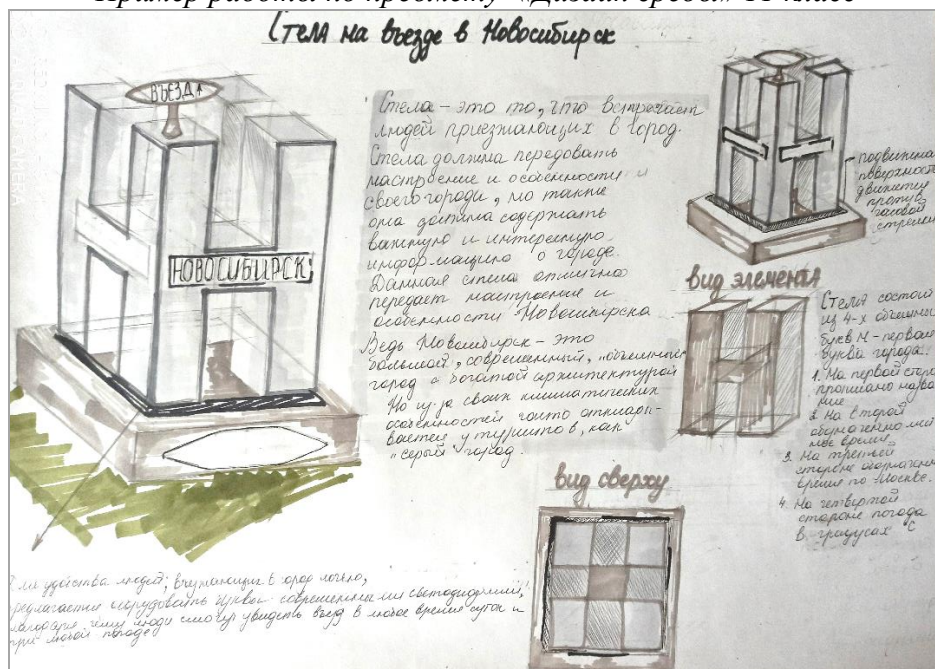 Пример работы по предмету «Дизайн среды» 11 класс
Стела на въезде в Новосибирск
ВЪЕЗД
НОВОСИБИРСК
Стела - это то, что встречает
людей приезжающих в город.
Стела должна передовать
настроение и особенности
своего города, но также
она должна содержать
важную и интересную
информацию о городе.
Данная стела отлично
передает настроение и
особенности Новосибирска
Ведь Новосибирск - это
большой, современный, "объемный"
город с богатой архитектурой
Но из-за своих климатических
особенностей часто
у туристов, как
"серый" город.
подвижная
поверхность
движется
против
часовой
стрелки
вид элемента
Стела состоит
из 4-х объемных
букв Н - первая
буква города.
1. На первой стороне
прописано название
2. На второй
обозначенно местное время
3. На третьей
стороне обозначено
время по Москве.
4. На четвёртой
стороне погода
в градусах °C
вид сверху
удобства людей, въезжающих в город ночью,
предлагается оборудовать буквы современными светодиодами,
благодаря чему люди смогут увидеть въезд в любое время суток и
при любой погоде